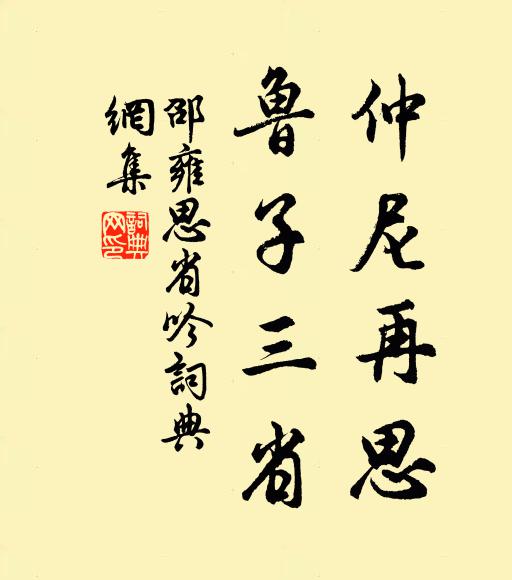 仲尼再思
魯子三省
邵雍思省吟詞典
網集
詞典
网印